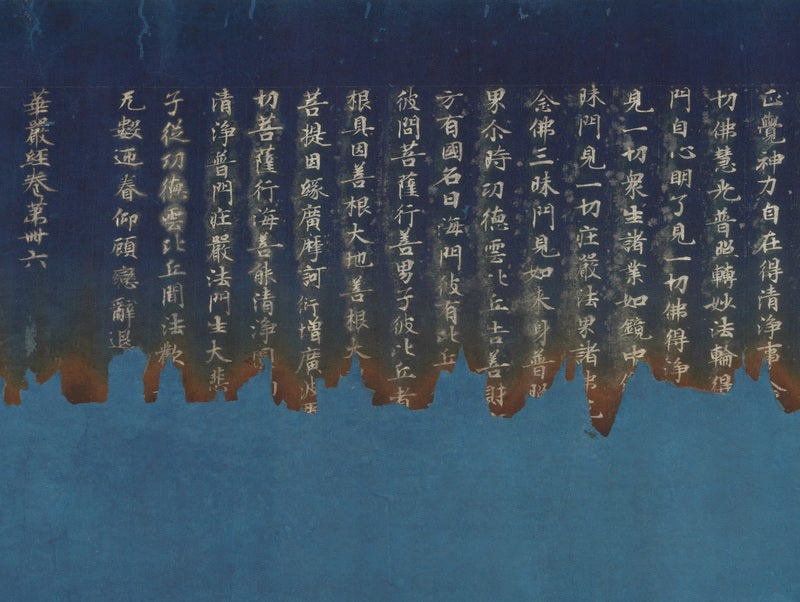 正覺神力自在得清淨
切佛慧光普照轉妙法輪得
門自心明了見一切佛得淨
見一切衆生諸業如鏡中
昧門見一切莊嚴法界諸
念佛三昧門見如来身普照
界尒時功德雲比丘告善財
方有國名曰海門彼有比丘
彼問菩薩行善男子彼比丘者
根具因善根大地善根大
菩提因緣廣摩訶衍增廣
切菩薩行海善能清淨
清淨普門莊嚴法門生大悲
子從功德雲比丘聞法歡
无數迊眷仰顧戀辭退
華嚴經卷第卌六